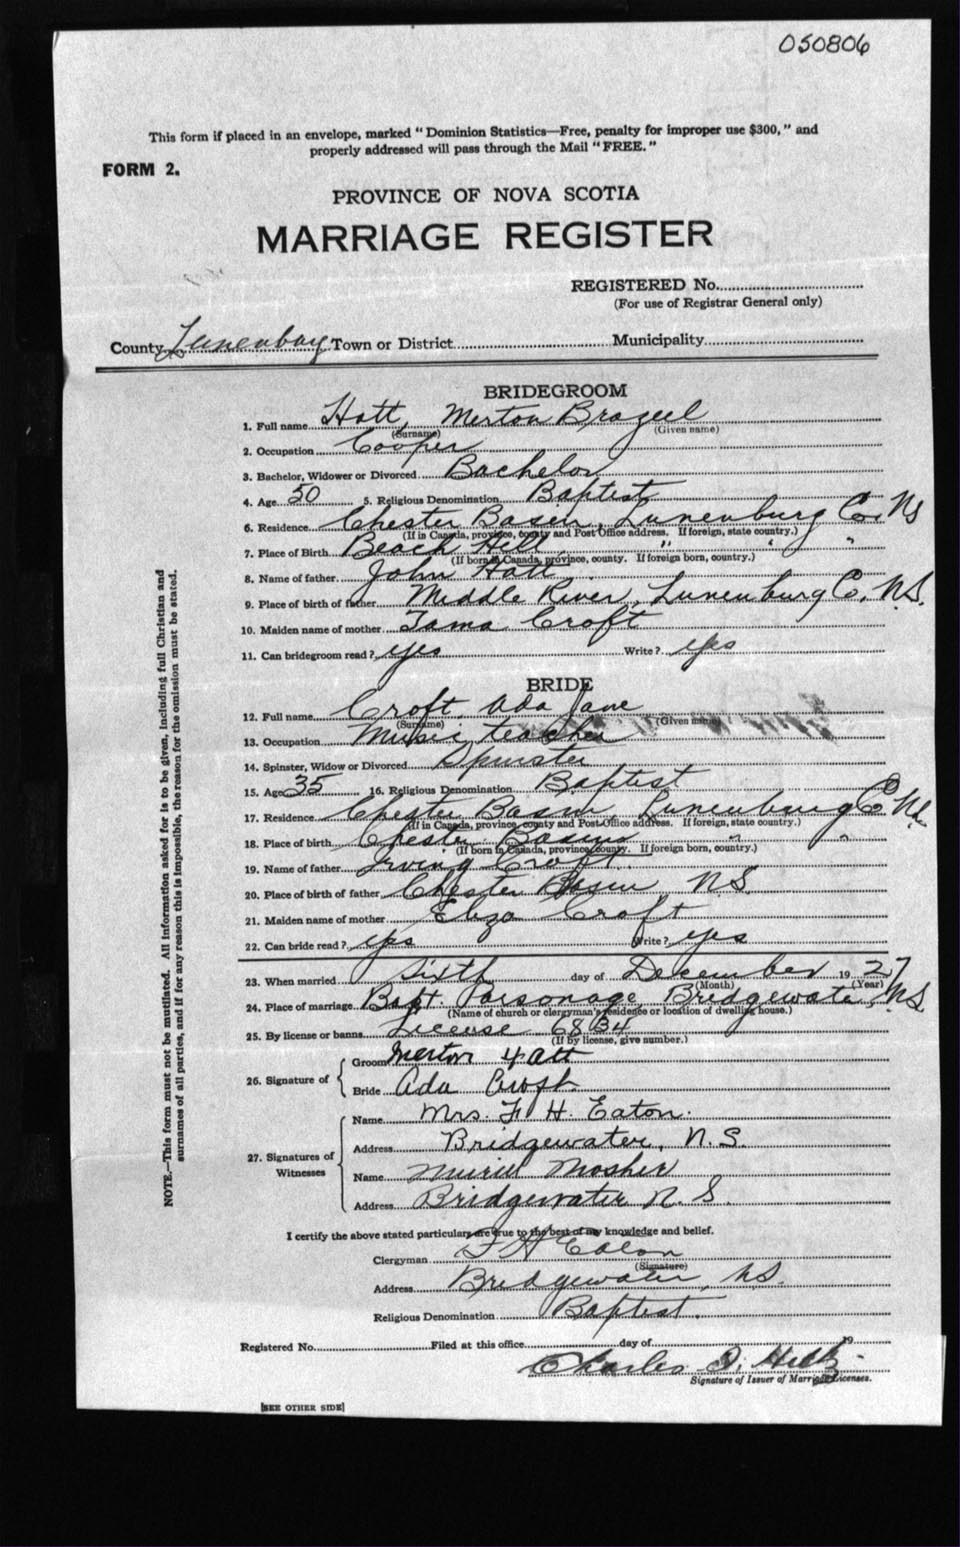 050806
This form if placed in an envelope, marked "Dominion Statistics—Free, penalty for improper use $300," and
properly addressed will pass through the Mail "FREE."
FORM 2.
PROVINCE OF NOVA SCOTIA
MARRIAGE REGISTER
REGISTERED No.
(For use of Registrar General only)
County Lunenburg Town or District Municipality
BRIDEGROOM
1. Full name Hatt, Merton
(Surname) (Given name)
2. Occupation Cooper
3. Bachelor, Widower or Divorced Bachelor
4. Age 50 5. Religious Denomination Baptist
6. Residence Chester Basin, Lunenburg Co. NS
(If in Canada, province, county and Post Office address. If foreign, state country.)
7. Place of Birth Beach Hill " " "
(If born in Canada, province, county. If foreign born, country.)
8. Name of father John Hatt
9. Place of birth of father Middle River, Lunenburg Co, N.S.
10. Maiden name of mother Croft
11. Can bridegroom read? yes Write? yes
BRIDE
12. Full name Croft, Ada Jane
(Surname) (Given name)
13. Occupation Music teacher
14. Spinster, Widow or Divorced Spinster
15. Age 35 16. Religious Denomination Baptist
17. Residence Chester Basin, Lunenburg Co NS
(If in Canada, province, county and Post Office address. If foreign, state country.)
18. Place of birth Chester Basin " "
(If born in Canada, province, county. If foreign born, country.)
19. Name of father Irving Croft
20. Place of birth of father Chester Basin N.S
21. Maiden name of mother Eliza Croft
22. Can bride read? yes Write? yes
23. When married sixth day of December 1927
(Month) (Year)
24. Place of marriage Bapt. Parsonage Bridgewater N.S
(Name of church or clergyman's residence or location of dwelling house.)
25. By license or banns License
(If by license, give number.)
26. Signature of
Groom Merton Hatt
Bride Ada Croft
27. Signatures of Witnesses
Name Mrs. F. H. Eaton.
Address Bridgewater, N.S.
Name Mosher
Address Bridgewater N.S.
I certify the above stated particulars are true to the best of my knowledge and belief.
Clergyman F H Eaton
(Signature)
Address Bridgewater, N.S.
Religious Denomination Baptist.
Registered No. Filed at this office day of 19
Charles
Signature of Issuer of Marriage Licenses.
[SEE OTHER SIDE]
NOTE.—This form must not be mutilated. All information asked for is to be given, including full Christian and
surnames of all parties, and if for any reason this is impossible, the reason for the omission must be stated.